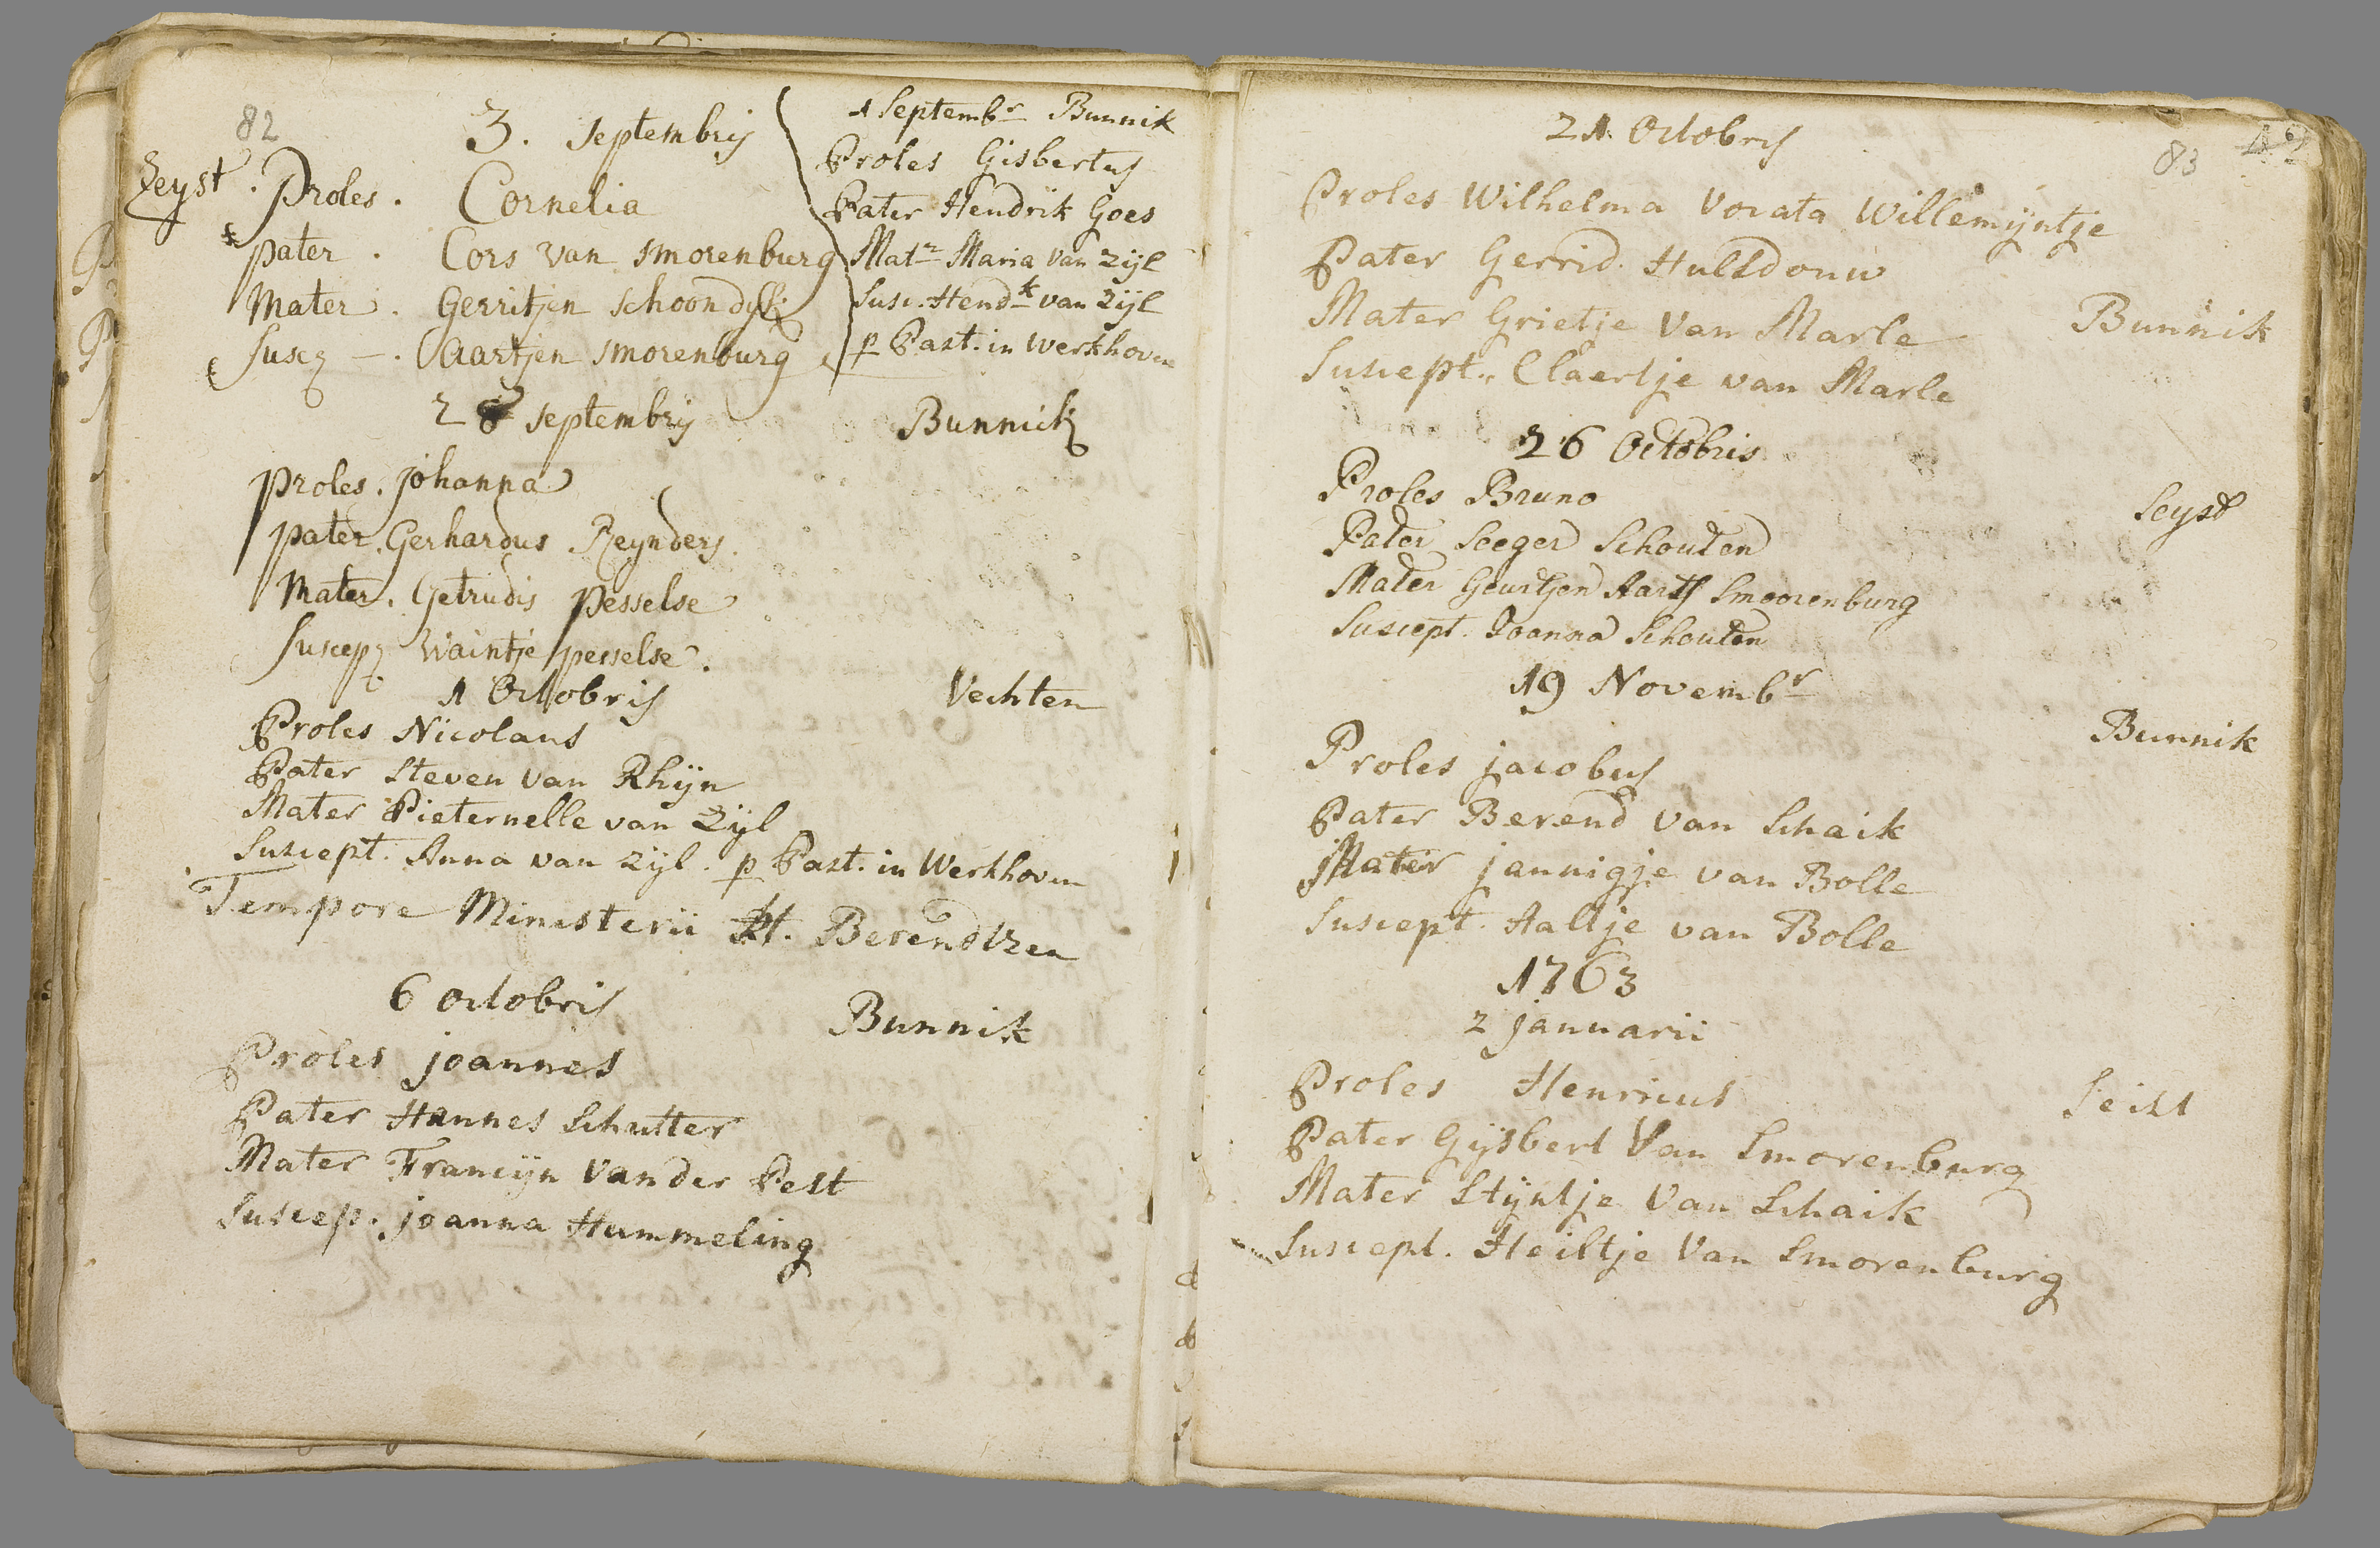 82
3. Septembris
Zeyst. Proles. Cornelia
pater. Cors van smorenburg
Mater. Gerritjen schoondijk
Suscep —. Aartjen smorenburg
1 Septembr Bunnik
Proles Gisbertus
Pater Hendrik Goes
Matr Maria van Zijl
Susc. Hendk van Zijl
p Past. in Werkhoven
28 septembris Bunnick
proles. johanna
pater. Gerhardus Reynders.
Mater. Getrudis pesselse
Suscep Waintje pesselse.
1 Octobris Vechten
Proles Nicolaus
Pater Steven van Rhijn
Mater Pieternelle van Zijl
Suscept. Anna van Zijl. p Past. in Werkhoven
Tempore Ministerii Berendtzen
6 octobris
Bunnik
Proles joannes
Pater Hannes Schutter
Mater Francijn Vander Pest
Suscep. joanna Hummeling
83
21. Octobris
Proles Wilhelma Vocata Willemijntje
Pater Gerrid. Hulsdouw
Mater Grietje Van Marle Bunnik
Suscept. Claertje van Marle
26 Octobris
Proles Bruno Seyst
Pater Seeger Schouten
Mater Geurtjen Aarts Smoorenburg
Suscept. Joanna Schouten
19 Novembr
Bunnik
Proles jacobus
Pater Berend van Schaik
Mater jannigje van Bolle
Suscept. Aaltje van Bolle
1763
2 januarii
Proles Henricus Seist
Pater Gijsbert Van Smorenburg
Mater Stijntje Van Schaik
Suscept. Heiltje Van Smorenburg